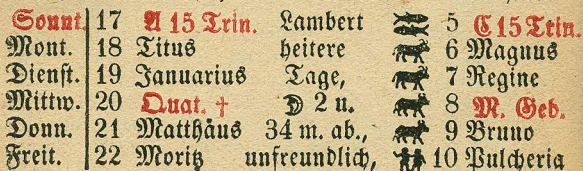 Sonnt. 17 A 15 Trin. Lambert 5 C 15 Trin.
Mont. 18 Titus heitere 6 Magnus
Dienst. 19 Januarius Tage, 7 Regine
Mittw. 20 Quat. † 2 u. 8 M. Geb.
Donn. 21 Matthäus 34 m. ab., 9 Bruno
Freit. 22 Moritz unfreundlich, 10 Pulcheria